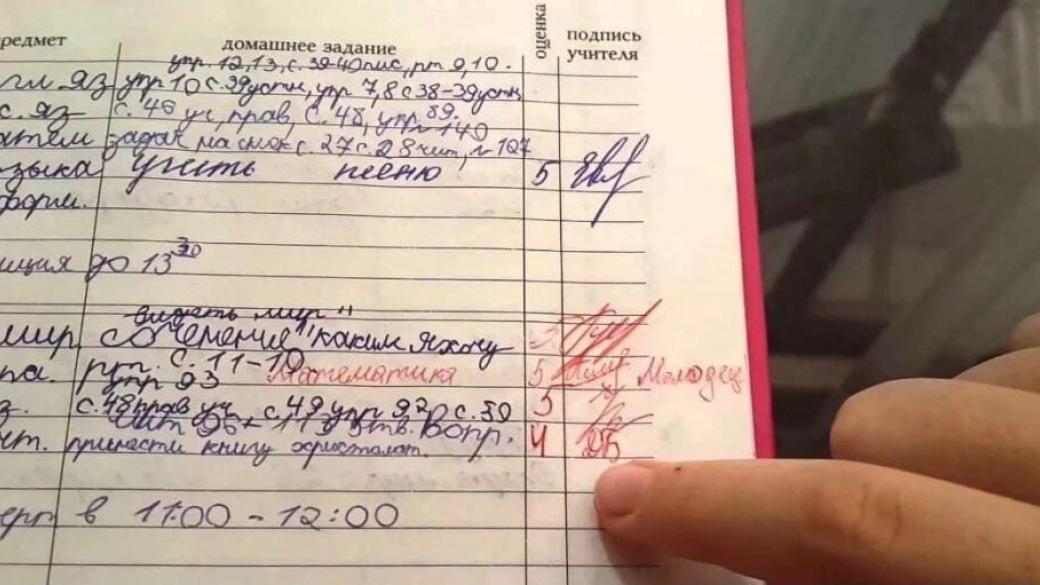 редмет домашнее задание оценка подпись учителя
упр. 12,13, с. 39-40 пис, рт 9,10.
гл. яз упр 10 с. 39 устн, упр 7,8 с 38-39 устн
с. яз с. 46 уч, прав, с. 48, упр 89.
атем задач на смек с. 27 с. 28 чит, № 127 140
зыка учить песню 5
форм.
иция до 13 30
видеть мир"
мир сочинение "каким я хочу
па. рт. с. 11-10 Математика 5 Молодец
упр 93
з. с. 48 прав уч, с. 49 упр 92 с. 50 5
чит 96 - 113 отв. вопр.
т. принести книгу хрестомат. 4
ерг в 11:00 - 12:00